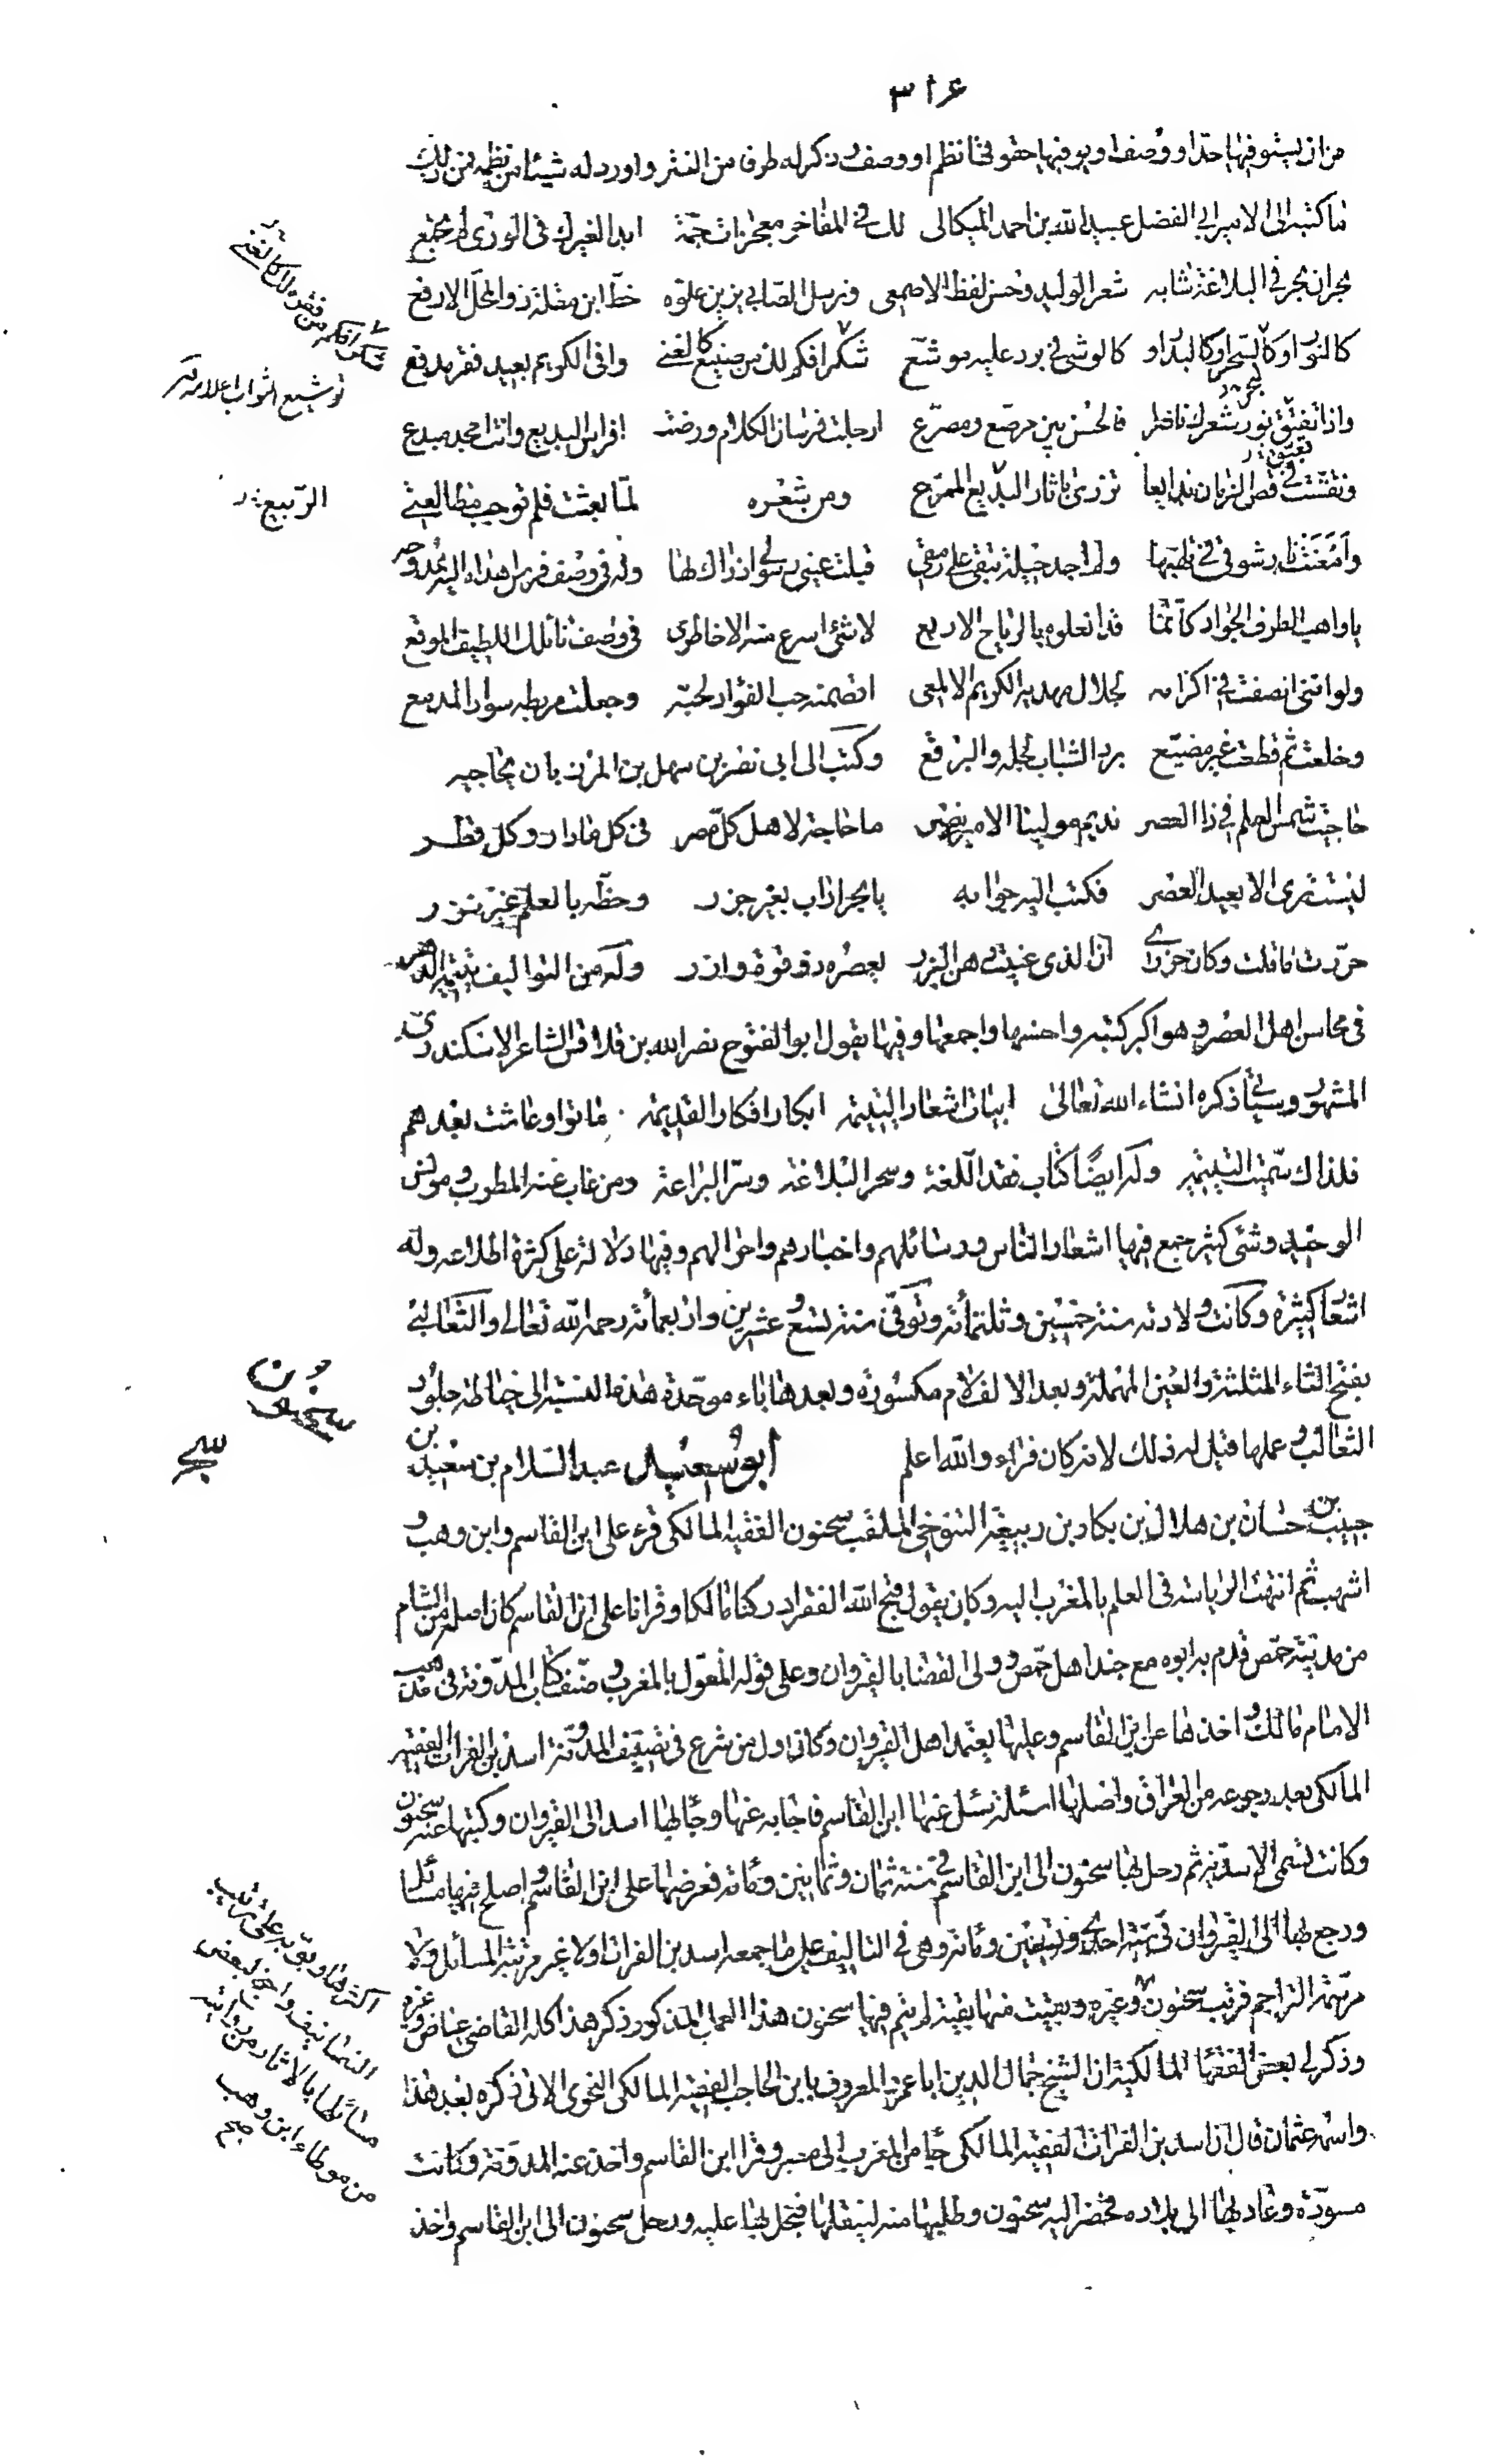 ٣١٤
من ان يستوفيها حد او وصف او يوفيها حقوقها نظم او وصف وذكر له طرف من النثر واورد له شيئا من نظمه فمن ذلك
ما كتبه الى الامير ابي الفضل عبيد الله بن احمد الميكالى لك في المفاخر معجزات جمة ابدا لغيرك في الورى لم تجمع
بحران بحر في البلاغة شابه شعر الوليد وحسن لفظ الاصمعى وترسل الصابي يزين علوه خط ابن مقلة ذو المحل الارفع
كالنور او كالسحر او كالبدر او كالوشى في برد عليه موشع شكرا فكم لك من صنيع كالغنى وافى الكريم بعيد فقر مدقع
واذا تفتق نور شعرك ناضرا فالحسن بين مرصع ومصرع ارجلت فرسان الكلام ورضت افراس البديع وانت امجد مبدع
ونقشت في فص الزمان بدايعا تزرى باثار الربيع الممرع ومن شعره لما بعثت فلم توجب مطالعتى
وامعنت نار شوقى في تلهبها ولم اجد حيلة تبقى على رمقى قبلت عينى رسولى اذ رآك بها وله في وصف فرس اهداه اليه ممدوحه
يا واهب الطرف الجواد كانما قد انعلوه بالرياح الاربع لا شئ اسرع منه الا خاطرى في وصف نائلك اللطيف الموقع
ولو اننى انصفت في اكرامه لجلال مهديه الكريم الالمعى اقضمته حب الفؤاد لحبه وجعلت مربطه سواد المدمع
وخلعت ثم قطعت غير مضيع برد الشباب لجله والبرقع وكتب الى ابى نصر بن سهل بن المرزبان يحاجيه
حاجيت شمس العلم في ذا العصر نديم مولينا الامير نصر ما حاجة لاهل كل مصر في كل ما دار وكل قطر
ليست ترى الا بعيد العصر فكتب اليه جوابه يا بحر اداب بغير جزر وحظه بالعلم غير نزر
حزرت ما قلت وكان حزرى ان الذى عنيت دهن البزر يعصره ذو قوة وازر وله من التواليف يتيمة الدهر
في محاسن اهل العصر وهو اكبر كتبه واحسنها واجمعها وفيها يقول ابو الفتوح نصر الله بن قلاقس الشاعر الاسكندرى
المشهور وسياتى ذكره انشاء الله تعالى ابيات اشعار اليتيمة ابكار افكار القديمة ماتوا وعاشت بعدهم
فلذاك سميت اليتيمه وله ايضا كتاب فقه اللغة وسحر البلاغة وسر البراعة ومن غاب عنه المطرب ومونس
الوحيد وشئ كثير جمع فيها اشعار الناس ورسائلهم واخبارهم واحوالهم وفيها دلالة على كثرة اطلاعه وله
اشعار كثيرة وكانت ولادته سنة خمسين وثلثمائة وتوفى سنة تسع وعشرين واربعمائة رحمه الله تعالى والثعالبى
بفتح الثاء المثلثة والعين المهملة وبعد الالف لام مكسورة وبعدها باء موحدة هذه النسبة الى خياطة جلود
الثعالب وعملها قيل له ذلك لانه كان فراء والله اعلم ابو سعيد عبد السلام بن سعيد بن
حبيب بن حسان بن هلال بن بكار بن ربيعة التنوخى الملقب سحنون الفقيه المالكى قرء على ابن القاسم وابن وهب و
اشهب ثم انتهت الرياسة في العلم بالمغرب اليه وكان يقول قبح الله الفقر ادركنا مالكا وقرانا على ابن القاسم كان اصله من الشام
من مدينة حمص قدم به ابوه مع جند اهل حمص وولى القضا بالقيروان وعلى قوله المعول بالمغرب وصنف كتاب المدونة في مذهب
الامام مالك واخذها عن ابن القاسم وعليها يعتمد اهل القيروان وكان اول من شرع في تصنيف المدونة اسد بن الفرات الفقيه
المالكى بعد رجوعه من العراق واصلها اسئلة سئل عنها ابن القاسم فاجابه عنها وجا بها اسد الى القيروان وكتبها عنه سحنون
وكانت تسمى الاسدية ثم رحل بها سحنون الى ابن القاسم في سنة ثمان وثمانين ومائة فعرضها على ابن القاسم واصلح فيها مسائل
ورجع بها الى القيروان في سنة احدى وتسعين ومائة وهى في التاليف على ما جمعه اسد بن الفرات اولا غير مرتبة المسائل ولا
مرتبة التراجم فرتب سحنون وغيره وبقيت منها بقية لم يتم فيها سحنون هذا العمل المذكور ذكر هذا كله القاضى عياض وغيره
وذكر لى بعض الفقها المالكية ان الشيخ جمال الدين ابا عمرو المعروف بابن الحاجب الفقيه المالكى النحوى الاتى ذكره بعد هذا
واسمه عثمان قال ان اسد بن الفرات الفقيه المالكى جا من المغرب الى مصر وقرا ابن القاسم واخذ عنه المدونة وكانت
مسودة وعاد بها الى بلاده فحضر اليه سحنون وطلبها منه لينقلها فبخل بها عليه ورحل سحنون الى ابن القاسم واخذ
شكرا فكم من فقرة لك كالغنى
توشيع الثواب اعلامه
الربيع
سحنون
اكثرها وبوبه على ترتيب
التصانيف واحتج لبعض
مسائلها بالاثار من روايته
من موطاء ابن وهب
صح